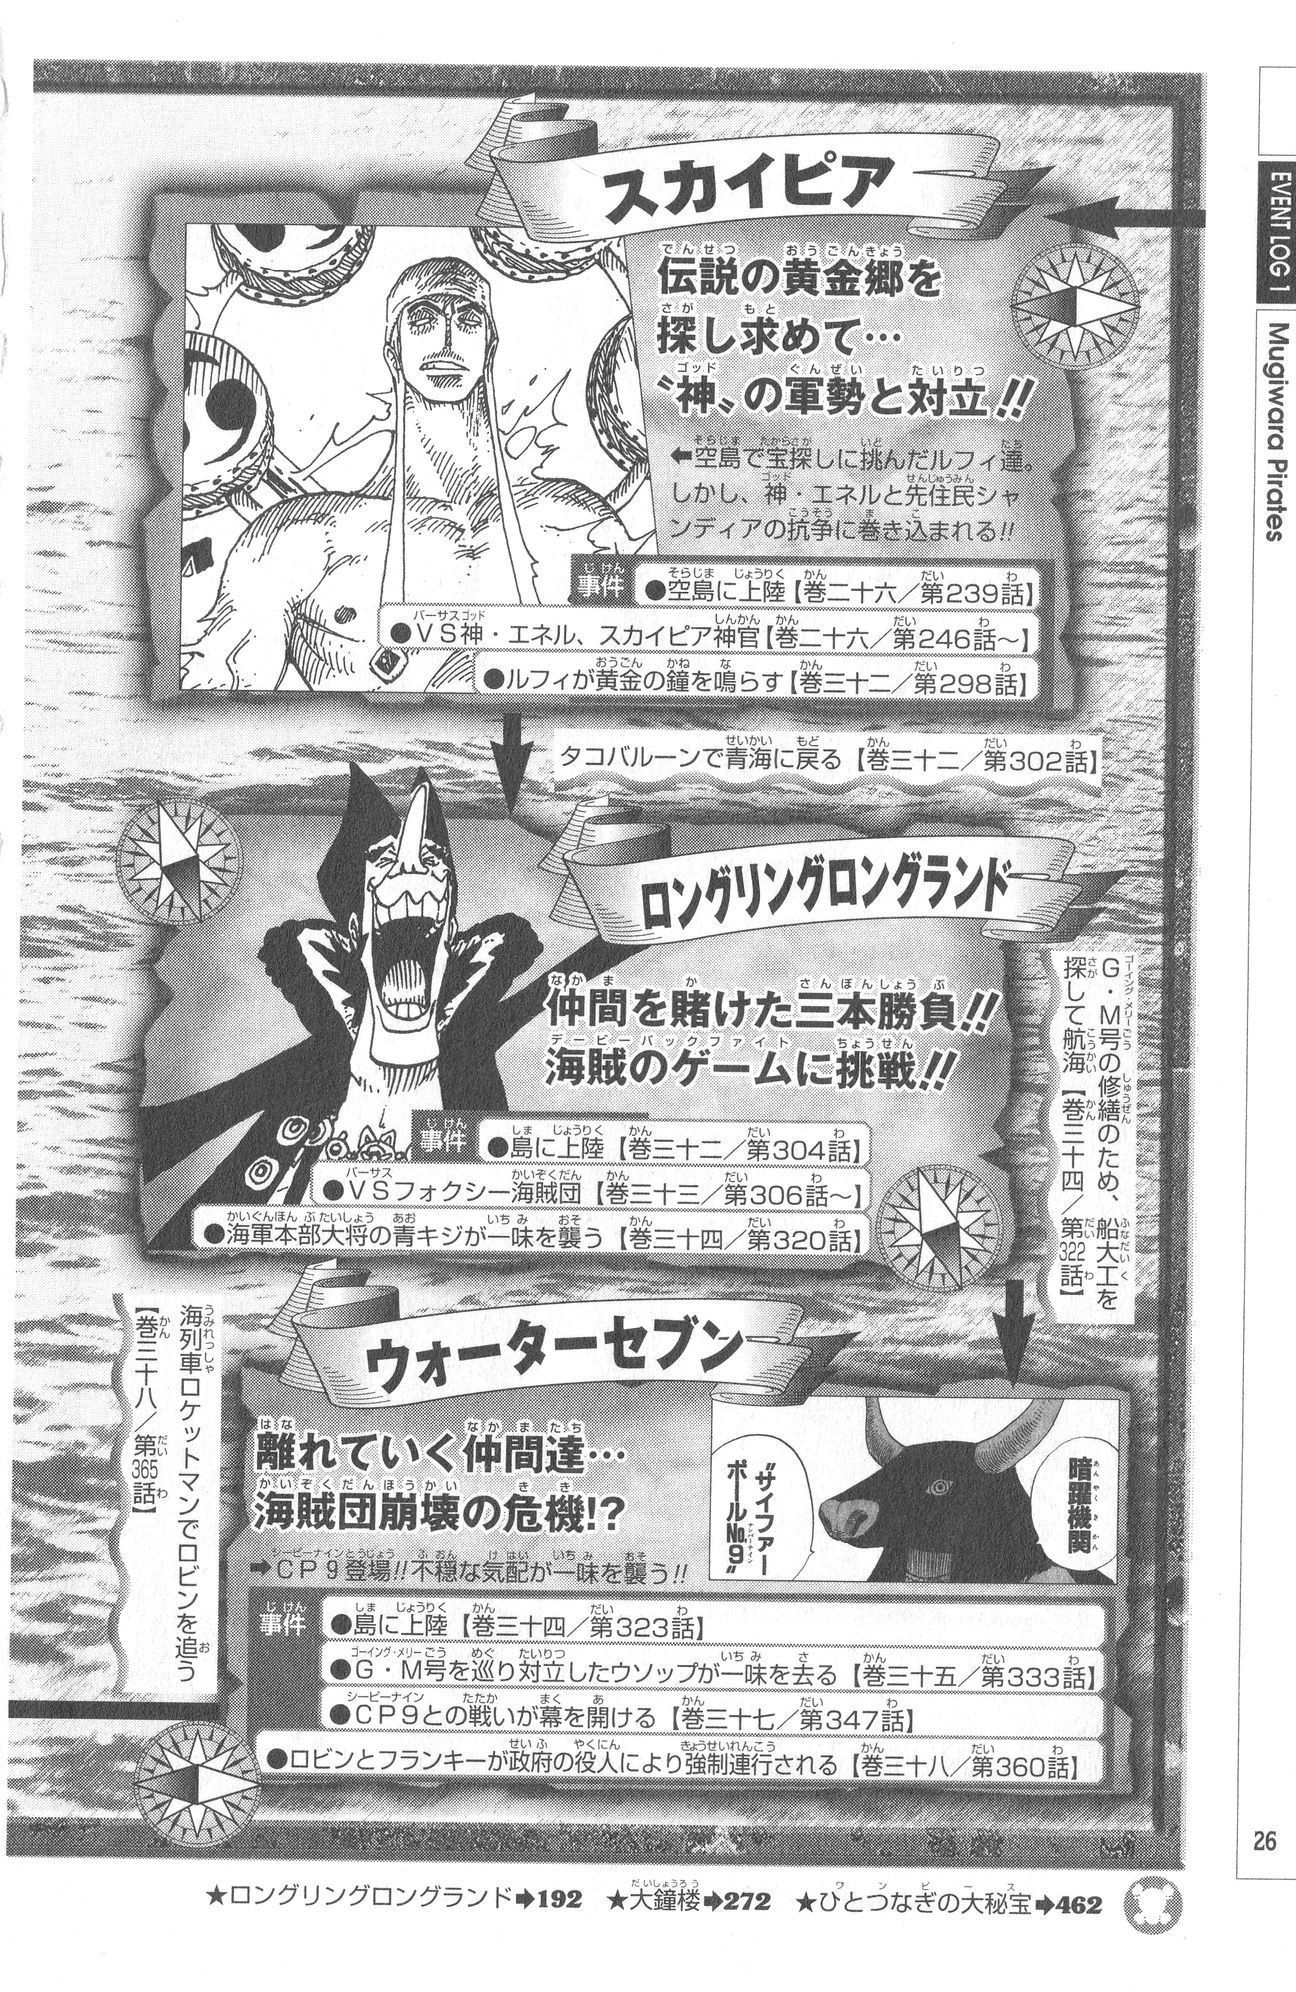 EVENT LOG 1
Mugiwara Pirates
スカイピア
伝説の黄金郷を
探し求めて…
〝神〟の軍勢と対立!!
⬅空島で宝探しに挑んだルフィ達。
しかし、神・エネルと先住民シャ
ンディアの抗争に巻き込まれる!!
事件
●空島に上陸【巻二十六／第239話】
●VS神・エネル、スカイピア神官【巻二十六／第246話〜】
●ルフィが黄金の鐘を鳴らす【巻三十二／第298話】
タコバルーンで青海に戻る【巻三十二／第302話】
ロングリングロングランド
仲間を賭けた三本勝負!!
海賊のゲームに挑戦!!
事件
●島に上陸【巻三十二／第304話】
●VSフォクシー海賊団【巻三十三／第306話〜】
●海軍本部大将の青キジが一味を襲う【巻三十四／第320話】
G・M号の修繕のため、船大工を
探して航海【巻三十四／第322話】
ウォーターセブン
離れていく仲間達…
海賊団崩壊の危機!?
➡CP9登場!!不穏な気配が一味を襲う!!
暗躍機関
〝サイファー
ポールNo.9〟
事件
●島に上陸【巻三十四／第323話】
●G・M号を巡り対立したウソップが一味を去る【巻三十五／第333話】
●CP9との戦いが幕を開ける【巻三十七／第347話】
●ロビンとフランキーが政府の役人により強制連行される【巻三十八／第360話】
海列車ロケットマンでロビンを追う
【巻三十八／第365話】
26
★ロングリングロングランド➡192　★大鐘楼➡272　★ひとつなぎの大秘宝➡462